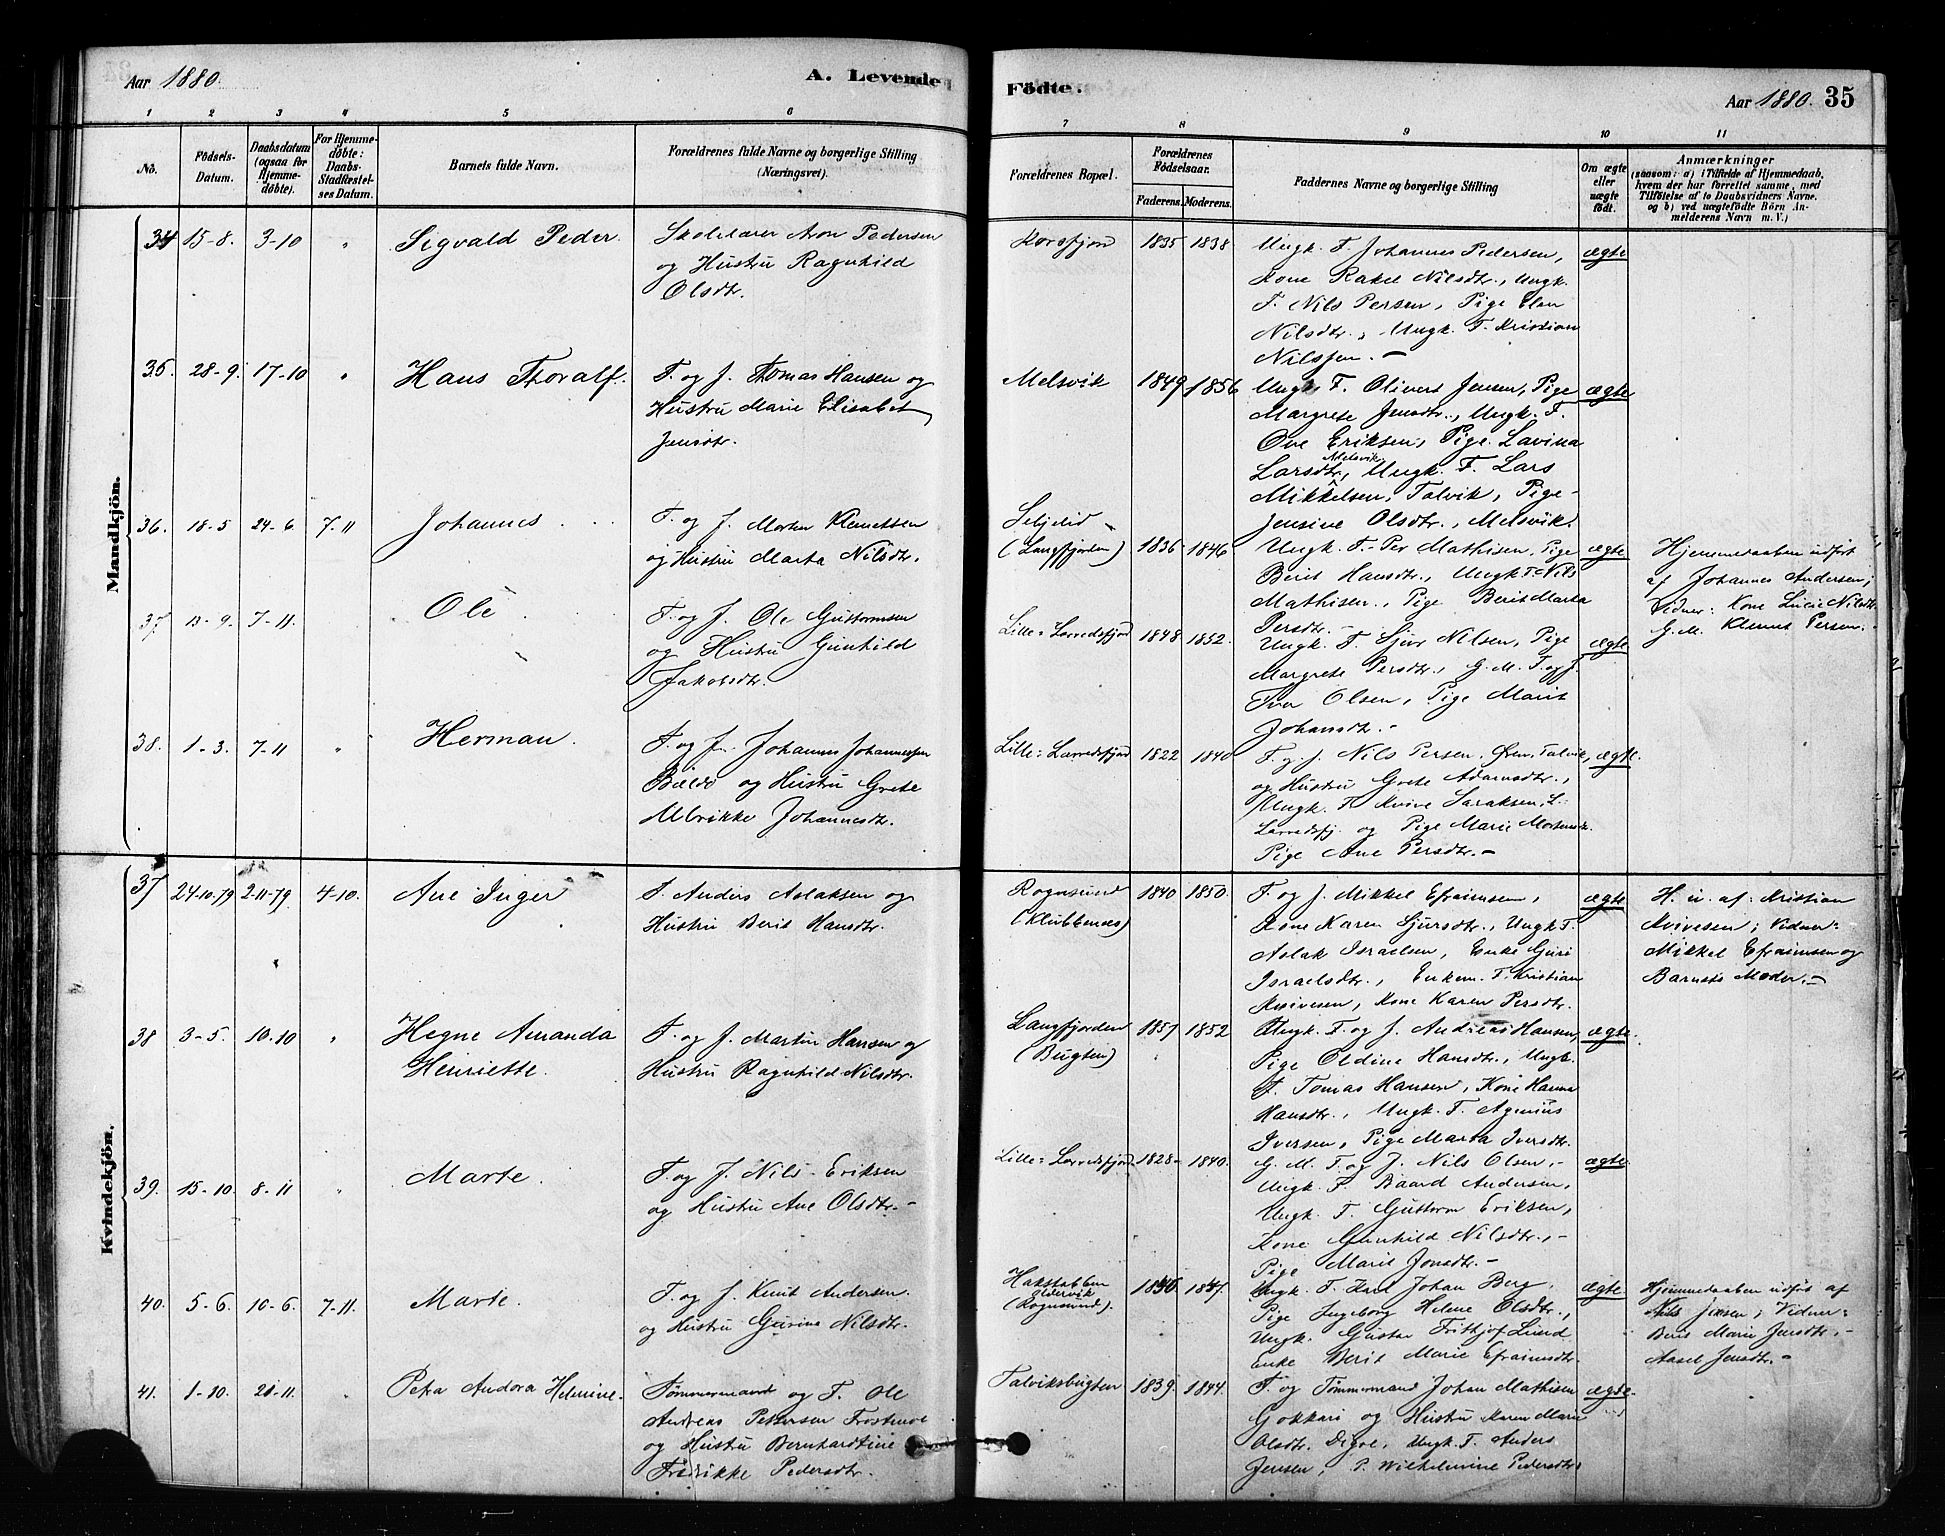 Aar 1880.
A. Levende
1 2 3 4 5 6
No.
Födsels-Datum.
Daabsdatum (ogsaa for Hjemme-døbte).
For Hjemme-døbte: Daabs-Stadfæstel-ses Datum.
Barnets fulde Navn.
Forældrenes fulde Navne og borgerlige Stilling (Næringsvei).
Mandkjön.
34 15-8. 3-10 " Sigvald Peder.
Skolelærer Aron Pedersen
og Hustru Ragnhild
Olsdtr.
35. 28-9. 17-10 " Hans Thoralf.
F. og J. Thomas Hansen og
Hustru Marie Elisabet
Jensdtr.
36. 18-5 24-6 7-11 Johannes
F. og J. Morten Klemetsen
og Hustru Marta Nilsdtr.
37. 7-11. Ole
F. og J. Ole Guttormsen
og Hustru Gunhild
Jakobsdtr.
38. 1-3. 7-11 " Herman.
F. og J. Johannes Johannessen
og Hustru Grete
Ulrikke Johannesdtr.
Kvindekjön.
37 24-10-79 2-11-79 4-10. Ane Inger
F. Anders Aslaksen og
Hustru Berit Hansdtr.
38 3-5. 10.10 " Hegne Amanda
Henriette.
F. og J. Martin Hansen og
Hustru Ragnhild Nilsdtr.
39. 15-10. 8-11 " Marte.
F. og J. Nils Eriksen
og Hustru Ane Olsdtr.-
40. 5-6. 10-6. 7-11. Marte.
F. og J. Knut Andersen.
og Hustru Gurine Nilsdtr.
41. 1-10. 21-11. " Petra Andora Helmine.
Tømmermand og F. Ole
Andreas Pettersen
og Hustru Bernhardtine
Fredrikke Pedersdtr.
Födte.
Aar 1880. 35
7 8 9 10 11
Forældrenes Bopæl.
Forældrenes Födselsaar.
Faderens. Moderens.
Faddernes Navne og borgerlige Stilling
Om ægte eller uægte født.
Anmærkninger
(saasom: a) i Tilfælde af Hjemmedaab,
hvem der har forrettet samme, med
Tilføielse af to Daabsvidners Navne.
og b) ved uægtefödte Börn An-
melderens Navn m. V.)
Korsfjord 1835 1838
Ungk. F. Johannes Pedersen, ægte
Kone Rakel Nilsdtr., Ungk.
F. Nils Persen, Pige Elen
Nilsdtr., Ungk. F. Kristian
Nilssen.-
Melsvik 1849 1856
Ungk. F. Olivert Jensen, Pige ægte
Margrete Jensdtr., Ungk. F.
Ove Eriksen, Pige Lavina
Larsdtr, Melsvik, Ungk. F. Lars
Mikkelsen, Talvik, Pige
Jensine Olsdtr., Melsvik.
(Langfjorden) 1836 1846
Ungk. F. Per Mathisen, Pige ægte
Berit Hansdtr., Ungk. F. Nils
Mathisen., Pige Berit Marta
Persdtr.-
Hjemmedaaben udført
af Johannes Andersen;
Vidner: Kone Lucie Nilsdtr.
G. M. Klemet Persen.-
Lille-Lerredsfjord 1848 1852.
Ungk. F. Sjur Nilsen, Pige ægte
Margrete Persdtr., G. M. F. og J.
Iver Olsen, Pige Marit
Johansdtr.-
Lille-Lerredsfjord 1822 1840
F. og J. Nils Persen, Talvik, ægte.
og Hustru Grete Adamsdtr.,
Ungk. F. Isaksen, L.
Lerredsfj. og Pige Marie
Pige Ane Persdtr.-
Rognsund 1840 1850.
(Klubbenes)
F. og J. Mikkel Efraimsen, ægte
Kone Karen Sjursdtr., Ungk. F.
Aslak Israelsen, Enke Guri
Israelsdtr., Enkem. F. Kristian
Avivesen, Kone Karen Persdtr.
H. u. af: Kristian
Avivesen; Vidner:
Mikkel Efraimsen og
Barnets Moder.-
Langfjorden 1851 1852
(Bugten)
Ungk. F. og J. Andreas Hansen, ægte
Pige Oldine Hansdtr., Ungk.
F. Tomas Hansen, Kone Hanna
Hansdtr., Ungk. F. Agenius
Iversen, Pige Marta Iversdtr.
Lille-Lerredsfjord 1828- 1840.
G. M. F. og J. Nils Olsen,- ægte
Ungk. F. Baard Andersen,
Ungk. F. Guttorm Eriksen,
Kone Gunhild Nilsdtr.,-
Pige Marit Jonsdtr.-
Hakstabben
(Rognsund).
Ungk. F. Karl Johan Berg, ægte
Pige Ingeborg Helene Olsdtr.,
Ungk. Gustav Frithjof Lund
Enke Berit Marie Efraimsdtr.
Hjemmedaaben udført af
Nils Jensen; Vidner:
Berit Marie Jensdtr.,-
Aasel Jensdtr.-
Talviksbugten 1839. 1844.
F. og Tømmermand Johan Mathisen ægte
Gokkari og Hustru Karen Marie
Olsdtr. Ungk. F. Anders
Jensen, P. Wilhelmine Pedersdtr.